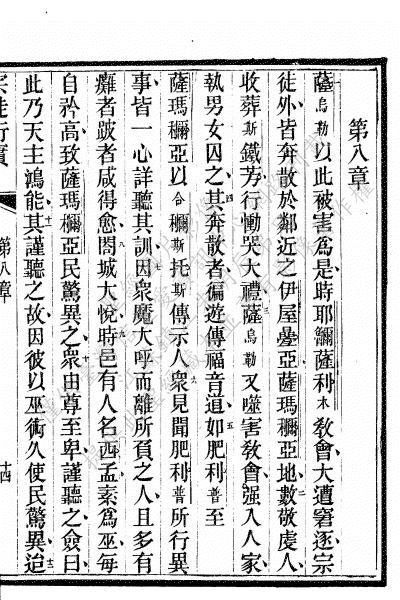 第八章
薩烏勒以此被害爲是時耶薩利木敎會大遭窘逐宗
徒外皆奔散於鄰近之伊屋疊亞薩瑪亞地數敬虔人
收葬斯鐵芳行慟哭大禮薩烏勒又噬害敎會强入人家
執男女囚之其奔散者徧遊傳福音道如肥利普至
薩瑪亞以合斯托斯傳示人衆見聞肥利普所行異
事皆一心詳聽其訓因衆魔大呼而離所負之人且多有
癱者跛者咸得愈閤城大悅時邑有人名西孟素爲巫每
自矜高致薩瑪亞民驚異之衆由尊至卑謹聽之僉曰
此乃天主鴻能其謹聽之故因彼以巫術久使民驚異迨
宗徒行實 第八章 十四